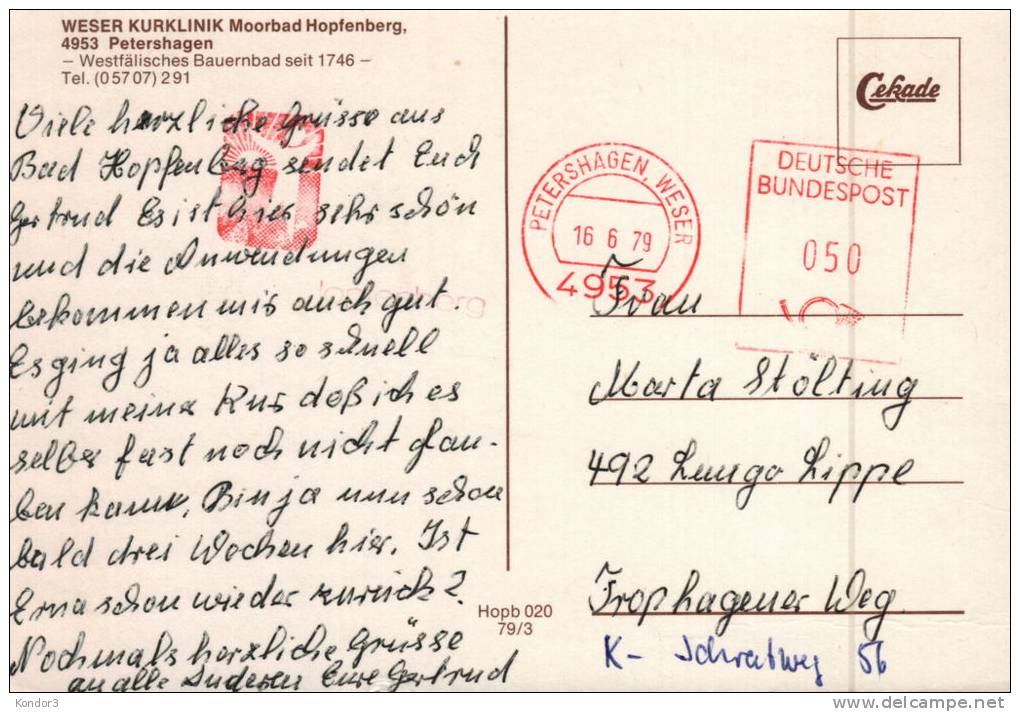 WESER KURKLINIK Moorbad Hopfenberg,
4953 Petershagen
– Westfälisches Bauernbad seit 1746 –
Tel. (05707) 291
Viele herzliche Grüsse aus
Bad Hopfenberg sendet Euch
Gertrud Es ist hier sehr schön
und die Anwendungen
bekommen mir auch gut.
Es ging ja alles so schnell
mit meiner Kur daß ich es
selber fast noch nicht glau-
ben kann. Bin ja nun schon
bald drei Wochen hier. Ist
Erna schon wieder zurück?
Nochmals herzliche Grüsse
an alle Anderen Eure Gertrud
Hopb 020
79/3
Cekade
PETERSHAGEN, WESER
16 6 79
4953
DEUTSCHE
BUNDESPOST
050
Frau
Marta Stölting
492 Lemgo Lippe
Trophagener Weg
K- Schratweg 56
Kondor3